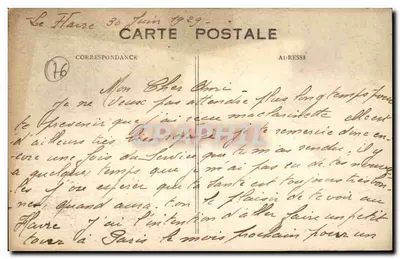 Le Havre 30 Juin 1929.
CARTE POSTALE
CORRESPONDANCE
ADRESSE
76
Mon Cher Ami
Je ne veux pas attendre plus longtemps pour
te prevenir que j'ai recu ma clarinette elle est
d'ailleurs tres bien je te remercie donc en-
core une fois du service que tu m'as rendu, il y
a quelques temps que je n'ai pas eu de tes nouvel
les j'ose esperer que ta santé est toujours bon
ne, quand aura-t-on le plaisir de te voir au
Havre j'ai l'intention d'aller faire un petit
tour à Paris le mois prochain pour un